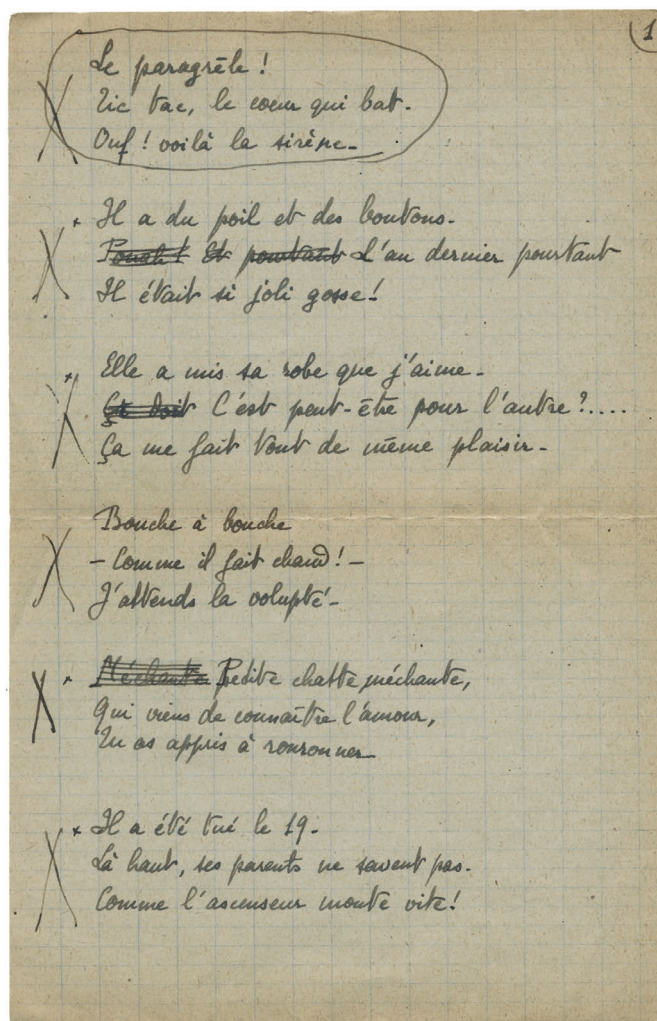 1
Le paragrêle !
Tic tac, le coeur qui bat.
Ouf ! voilà la sirène.
Il a du poil et des boutons.
Pouah ! Et pourtant L'an dernier pourtant
Il était si joli gosse !
Elle a mis sa robe que j'aime.
Ça doit C'est peut-être pour l'autre ?....
Ça me fait tout de même plaisir.
Bouche à bouche
– Comme il fait chaud ! –
J'attends la volupté.
Méchante Petite chatte méchante,
Qui viens de connaître l'amour,
Tu as appris à ronronner.
Il a été tué le 19.
Là haut, ses parents ne savent pas.
Comme l'ascenseur monte vite !